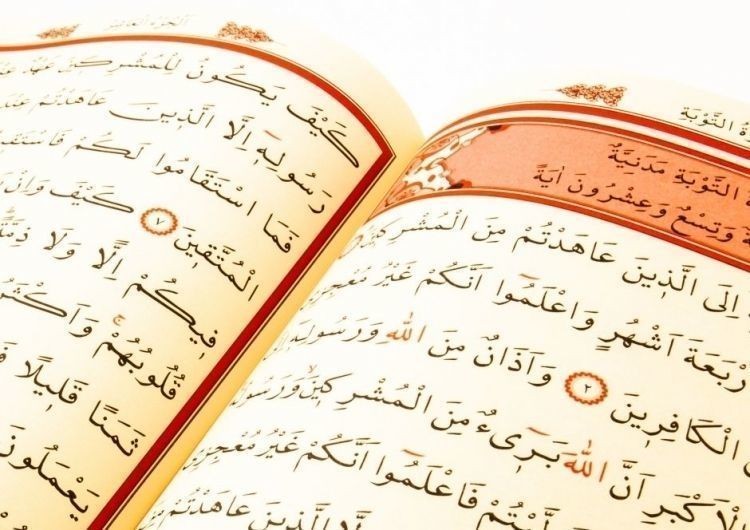 التَّوْبَةِ
التَّوْبَةِ مَدَنِيَّةٌ
وَتِسْعٌ وَعِشْرُونَ اٰيَةً
اِلَى الَّذِينَ عَاهَدْتُمْ مِنَ الْمُشْرِكِينَ
اَشْهُرٍ وَاعْلَمُوا اَنَّكُمْ غَيْرُ مُعْجِزِي
الْكَافِرِينَ ٢ وَاَذَانٌ مِنَ اللهِ وَرَسُولِهِ
اَنَّ اللهَ بَرِىءٌ مِنَ الْمُشْرِكِينَ وَرَسُولُهُ
فَاعْلَمُوا اَنَّكُمْ غَيْرُ مُعْجِزِي
الَّذِينَ عَاهَدْتُمْ
الجزء العاشر
كَيْفَ يَكُونُ لِلْمُشْرِكِينَ عَهْدٌ عِنْدَ
رَسُولِهِ اِلَّا الَّذِينَ عَاهَدْتُمْ عِنْدَ
فَمَا اسْتَقَامُوا لَكُمْ فَاسْتَقِيمُوا
الْمُتَّقِينَ ٧ كَيْفَ وَاِنْ
فِيكُمْ اِلًّا وَلَا ذِمَّةً
قُلُوبُهُمْ وَاَكْثَرُ
ثَمَنًا قَلِيلًا
يَعْمَلُونَ